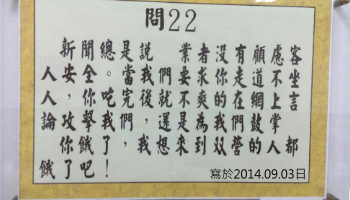 問22
新聞總是說業者沒有願慮客
人安全。當我們要求你走道不坐
人,你吃完後,就不爽的在網上言
論,攻擊我們,還是為我們鼓掌
你餓了,我想來到双營的人都
餓了吧!
寫於2014.09.03日